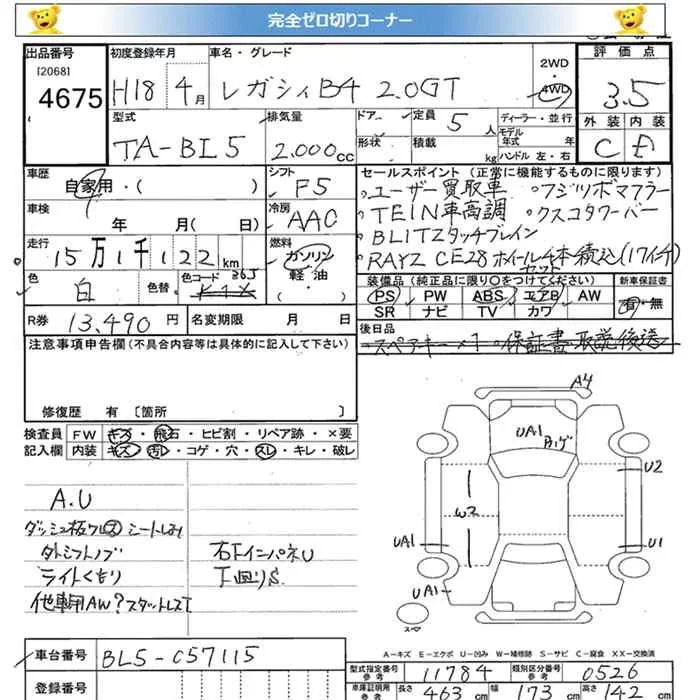 完全ゼロ切りコーナー
出品番号 初度登録年月 車名・グレード 2WD 評価点
[2068]
4675 H18 4月 レガシィB4 2.0GT 4WD 3.5
型式 排気量 ドア 定員 5人 ディーラー・並行 外装 内装
形状 積載 kg モデル年式 年 ハンドル 左・右
TA-BL5 2.000cc C D
車歴 自家用・( ) シフト F5 セールスポイント(正常に機能するものに限ります)
ユーザー買取車 フジツボマフラー
車検 年 月(日) 冷房 AAC TEIN車高調 クスコタワーバー
BLITZタッチブレイン
走行 15万1千122km 燃料 ガソリン 軽油 RAYZ CE28ホイール4本積込(17インチ)
セット
色 白 色替 色コード 36J 装備品(純正品に限り○をつけてください) 新車保証書
PS PW ABS エアB AW 有・無
SR ナビ TV カワ
R券 13,490円 名変期限 月 日 後日品
スペアキー×1 保証書 取説後送
注意事項申告欄(不具合内容等は具体的に記入して下さい)
修復歴 有〔箇所 〕
検査員 FW キズ・飛石・ヒビ割・リペア跡・×要
記入欄 内装 キズ・汚レ・コゲ・穴・スレ・キレ・破レ
A.U
シートしみ
外シフトノブ 右下インパネU
ライトくもり 下回りS
他車用AW?スタットレスT
A4
UA1
U2
W2
UA1 U1
UA1
スペア
A-キズ E-エクボ U-凹み W-補修跡 S-サビ C-腐食 XX-交換済
車台番号 BL5-057115
型式指定番号 参考 11784 類別区分番号 参考 0526
登録番号 車庫証明用 参考 長さ 463cm 幅 173cm 高さ 142cm